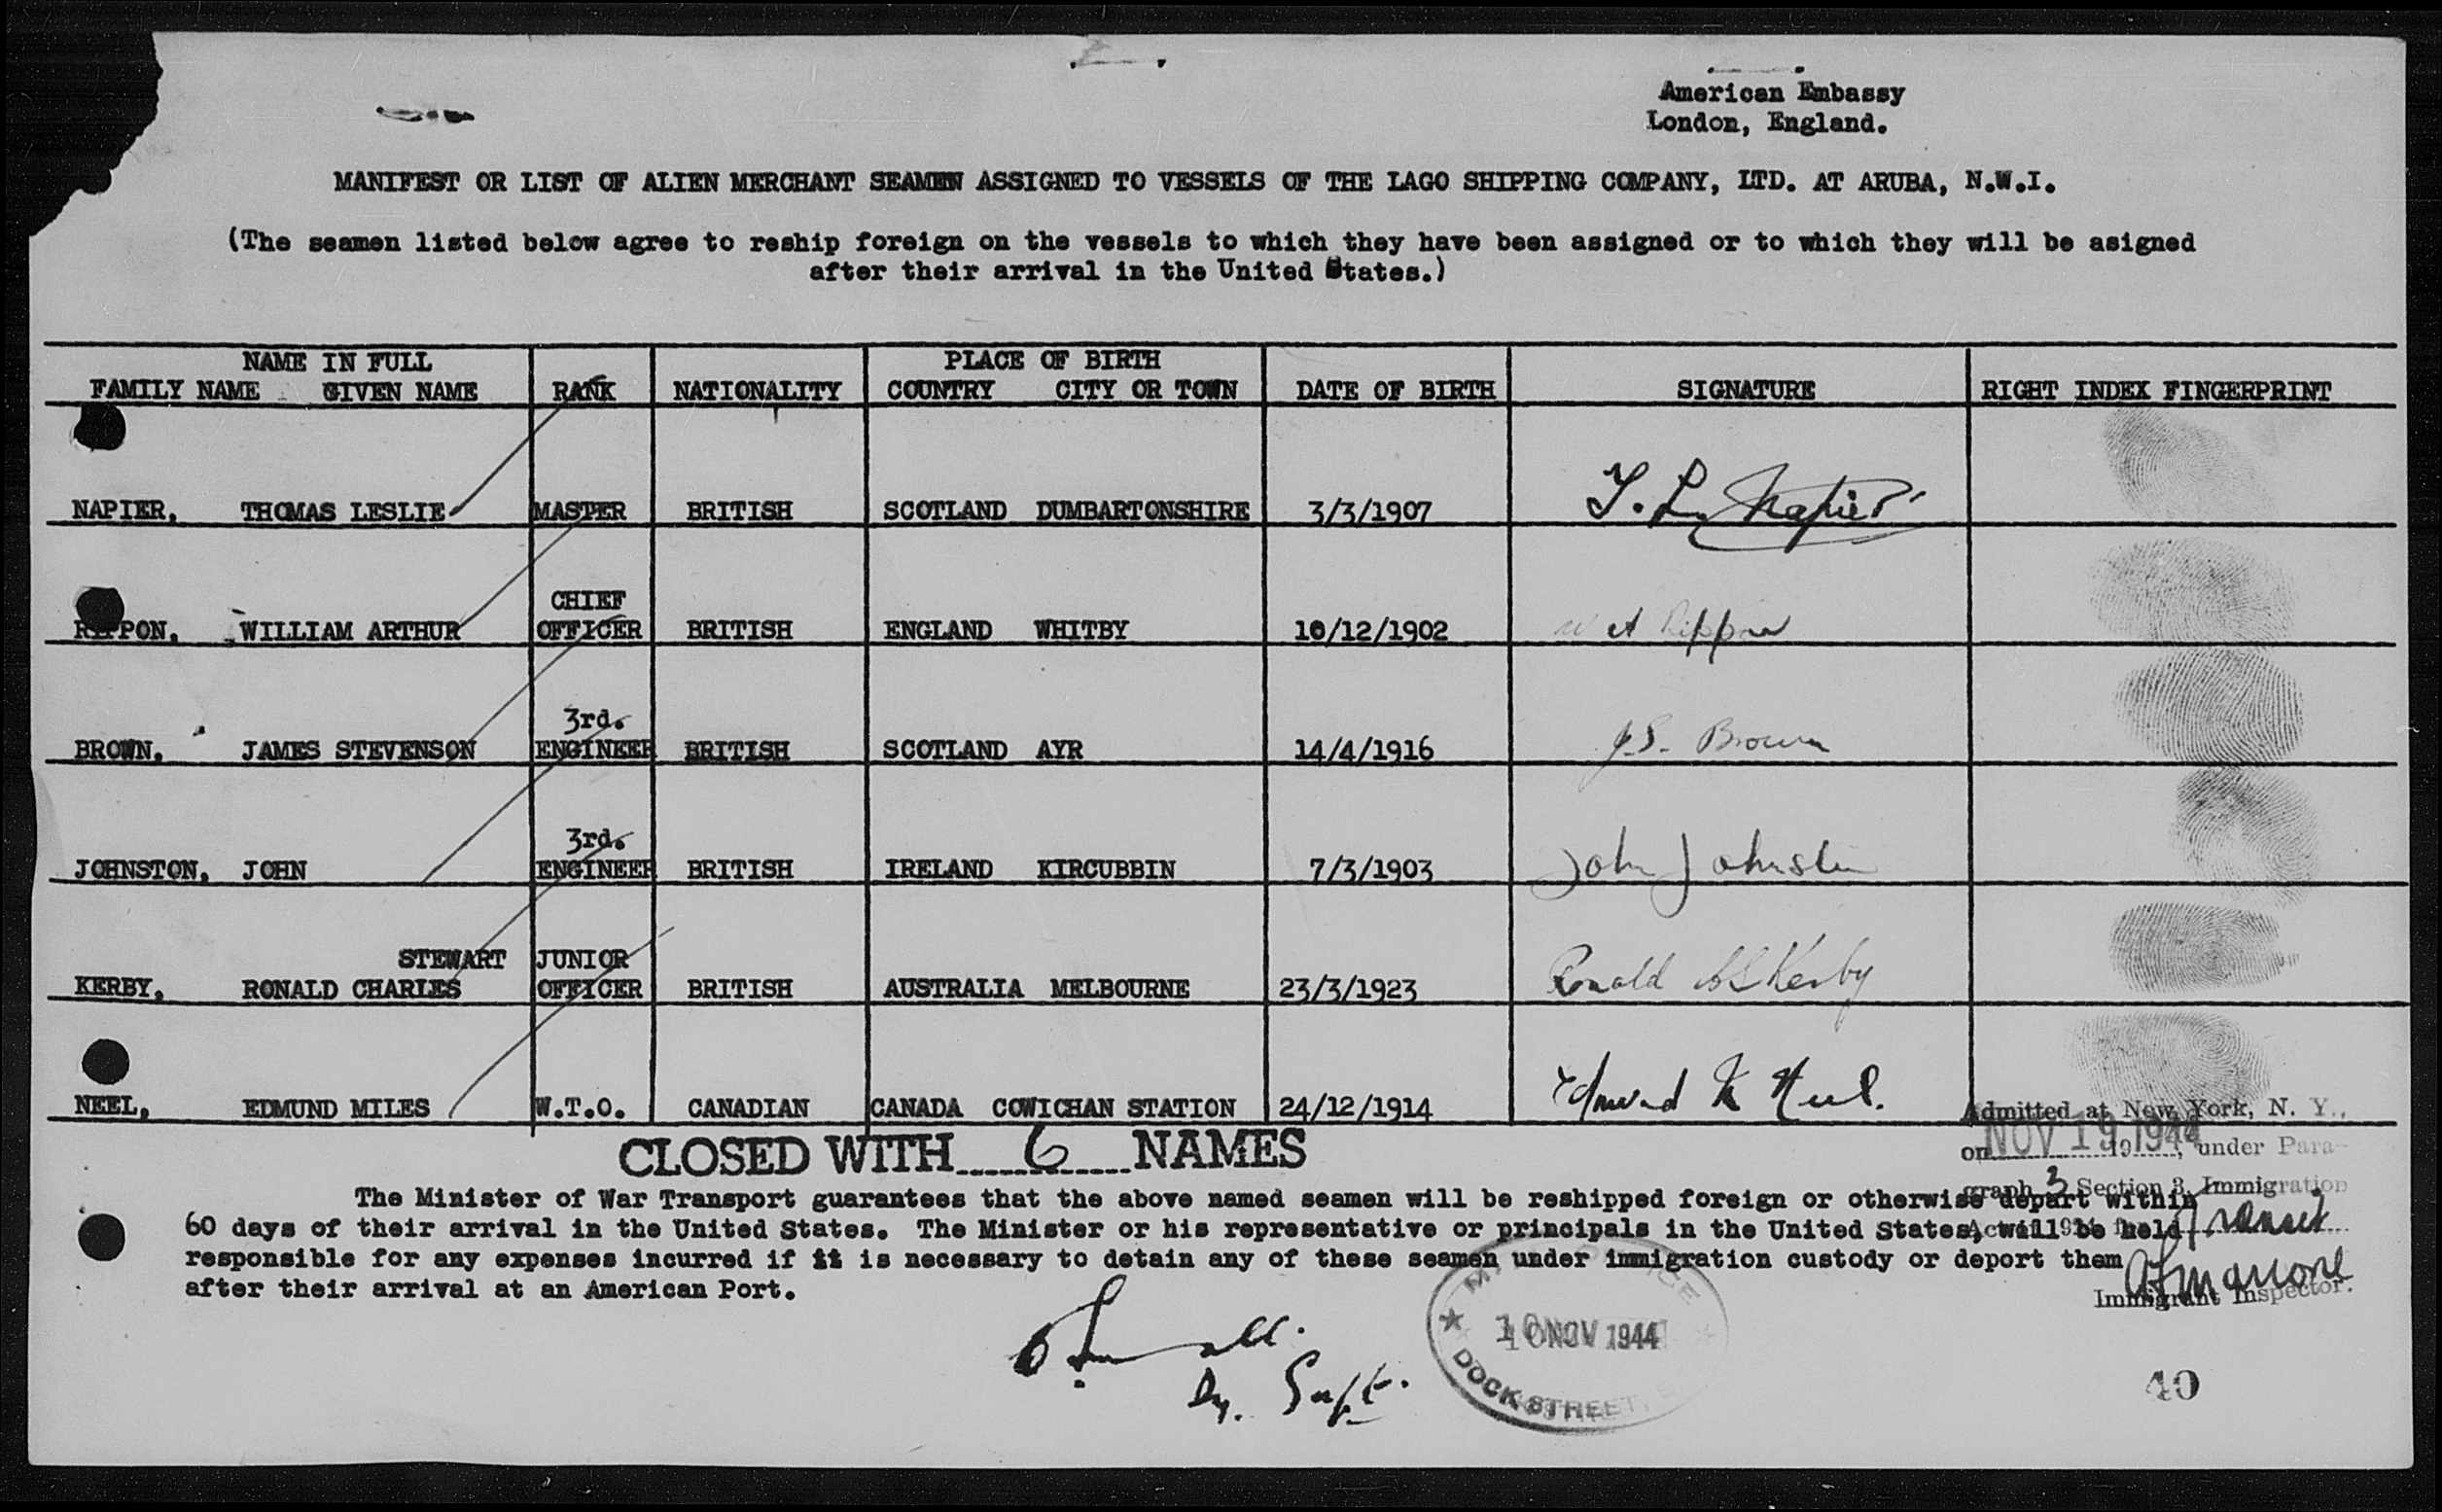 American Embassy
London, England.
MANIFEST OR LIST OF ALIEN MERCHANT SEAMEN ASSIGNED TO VESSELS OF THE LAGO SHIPPING COMPANY, LTD. AT ARUBA, N.W.I.
(The seamen listed below agree to reship foreign on the vessels to which they have been assigned or to which they will be asigned
after their arrival in the United States.)
NAME IN FULL PLACE OF BIRTH
FAMILY NAME GIVEN NAME RANK NATIONALITY COUNTRY CITY OR TOWN DATE OF BIRTH SIGNATURE RIGHT INDEX FINGERPRINT
NAPIER, THOMAS LESLIE MASTER BRITISH SCOTLAND DUMBARTONSHIRE 3/3/1907 T. L. Napier
CHIEF
WILLIAM ARTHUR OFFICER BRITISH ENGLAND WHITBY 10/12/1902 W A Rippon
3rd.
BROWN, JAMES STEVENSON ENGINEER BRITISH SCOTLAND AYR 14/4/1916 J.S. Brown
3rd.
JOHNSTON, JOHN ENGINEER BRITISH IRELAND KIRCUBBIN 7/3/1903 John Johnston
STEWART JUNIOR
KERBY, RONALD CHARLES OFFICER BRITISH AUSTRALIA MELBOURNE 23/3/1923 Ronald CS Kerby
NEEL, EDMUND MILES W.T.O. CANADIAN CANADA COWICHAN STATION 24/12/1914 Edmund M Neel.
CLOSED WITH 6 NAMES
Admitted at New York, N. Y.,
on NOV 19 1944, under Para-
graph 3 Section 3, Immigration
Transit
Immigrant Inspector.
The Minister of War Transport guarantees that the above named seamen will be reshipped foreign or otherwise depart within
60 days of their arrival in the United States. The Minister or his representative or principals in the United States, will be held
responsible for any expenses incurred if it is necessary to detain any of these seamen under immigration custody or deport them
after their arrival at an American Port.
Dy. Supt.
10 NOV 1944
DOCK STREET
40